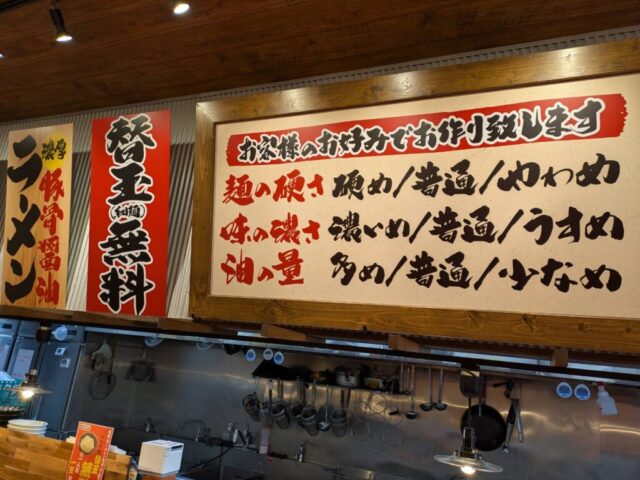 濃厚
豚骨醤油
ラーメン
替玉
無料
お客様のお好みでお作り致します
麺の硬さ 硬め/普通/やわめ
味の濃さ 濃いめ/普通/うすめ
油の量 多め/普通/少なめ